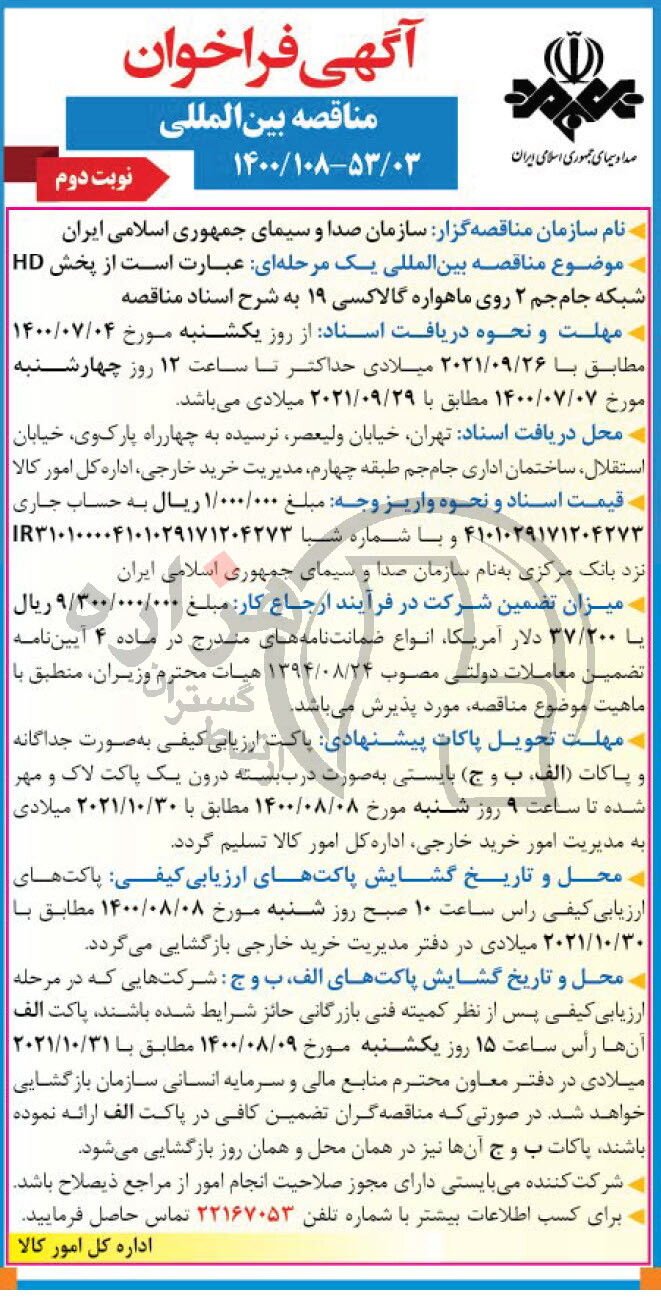 آگهی فراخوان
مناقصه بین‌المللی
۱۴۰۰/۱۰۸-۵۳/۰۳
نوبت دوم
صدا و سیمای جمهوری اسلامی ایران
نام سازمان مناقصه‌گزار: سازمان صدا و سیمای جمهوری اسلامی ایران
موضوع مناقصه بین‌المللی یک مرحله‌ای: عبارت است از پخش HD
شبکه جام‌جم ۲ روی ماهواره گالاکسی ۱۹ به شرح اسناد مناقصه
مهلت و نحوه دریافت اسناد: از روز یکشنبه مورخ ۱۴۰۰/۰۷/۰۴
مطابق با ۲۰۲۱/۰۹/۲۶ میلادی حداکثر تا ساعت ۱۲ روز چهارشنبه
مورخ ۱۴۰۰/۰۷/۰۷ مطابق با ۲۰۲۱/۰۹/۲۹ میلادی می‌باشد.
محل دریافت اسناد: تهران، خیابان ولیعصر، نرسیده به چهارراه پارک‌وی، خیابان
استقلال، ساختمان اداری جام‌جم طبقه چهارم، مدیریت خرید خارجی، اداره‌کل امور کالا
قیمت اسناد و نحوه واریز وجه: مبلغ ۱/۰۰۰/۰۰۰ ریال به حساب جاری
۴۱۰۱۰۲۹۱۷۱۲۰۴۲۷۳ و با شماره شبا IR۳۱۰۱۰۰۰۰۴۱۰۱۰۲۹۱۷۱۲۰۴۲۷۳
نزد بانک مرکزی به‌نام سازمان صدا و سیمای جمهوری اسلامی ایران
میزان تضمین شرکت در فرآیند ارجاع کار: مبلغ ۹/۳۰۰/۰۰۰/۰۰۰ ریال
یا ۳۷/۲۰۰ دلار آمریکا، انواع ضمانت‌نامه‌های مندرج در ماده ۴ آیین‌نامه
تضمین معاملات دولتی مصوب ۱۳۹۴/۰۸/۲۴ هیات محترم وزیران، منطبق با
ماهیت موضوع مناقصه، مورد پذیرش می‌باشد.
مهلت تحویل پاکات پیشنهادی: پاکت ارزیابی‌کیفی به‌صورت جداگانه
و پاکات (الف، ب و ج) بایستی به‌صورت درب‌بسته درون یک پاکت لاک و مهر
شده تا ساعت ۹ روز شنبه مورخ ۱۴۰۰/۰۸/۰۸ مطابق با ۲۰۲۱/۱۰/۳۰ میلادی
به مدیریت امور خرید خارجی، اداره‌کل امور کالا تسلیم گردد.
محل و تاریخ گشایش پاکت‌های ارزیابی‌کیفی: پاکت‌های
ارزیابی‌کیفی راس ساعت ۱۰ صبح روز شنبه مورخ ۱۴۰۰/۰۸/۰۸ مطابق با
۲۰۲۱/۱۰/۳۰ میلادی در دفتر مدیریت خرید خارجی بازگشایی می‌گردد.
محل و تاریخ گشایش پاکت‌های الف، ب و ج : شرکت‌هایی که در مرحله
ارزیابی‌کیفی پس از نظر کمیته فنی بازرگانی حائز شرایط شده باشند، پاکت الف
آن‌ها رأس ساعت ۱۵ روز یکشنبه مورخ ۱۴۰۰/۰۸/۰۹ مطابق با ۲۰۲۱/۱۰/۳۱
میلادی در دفتر معاون محترم منابع مالی و سرمایه انسانی سازمان بازگشایی
خواهد شد. در صورتی‌که مناقصه‌گران تضمین کافی در پاکت الف ارائه نموده
باشند، پاکات ب و ج آن‌ها نیز در همان محل و همان روز بازگشایی می‌شود.
شرکت‌کننده می‌بایستی دارای مجوز صلاحیت انجام امور از مراجع ذیصلاح باشد.
برای کسب اطلاعات بیشتر با شماره تلفن ۲۲۱۶۷۰۵۳ تماس حاصل فرمایید.
اداره کل امور کالا
هزاره
گستران